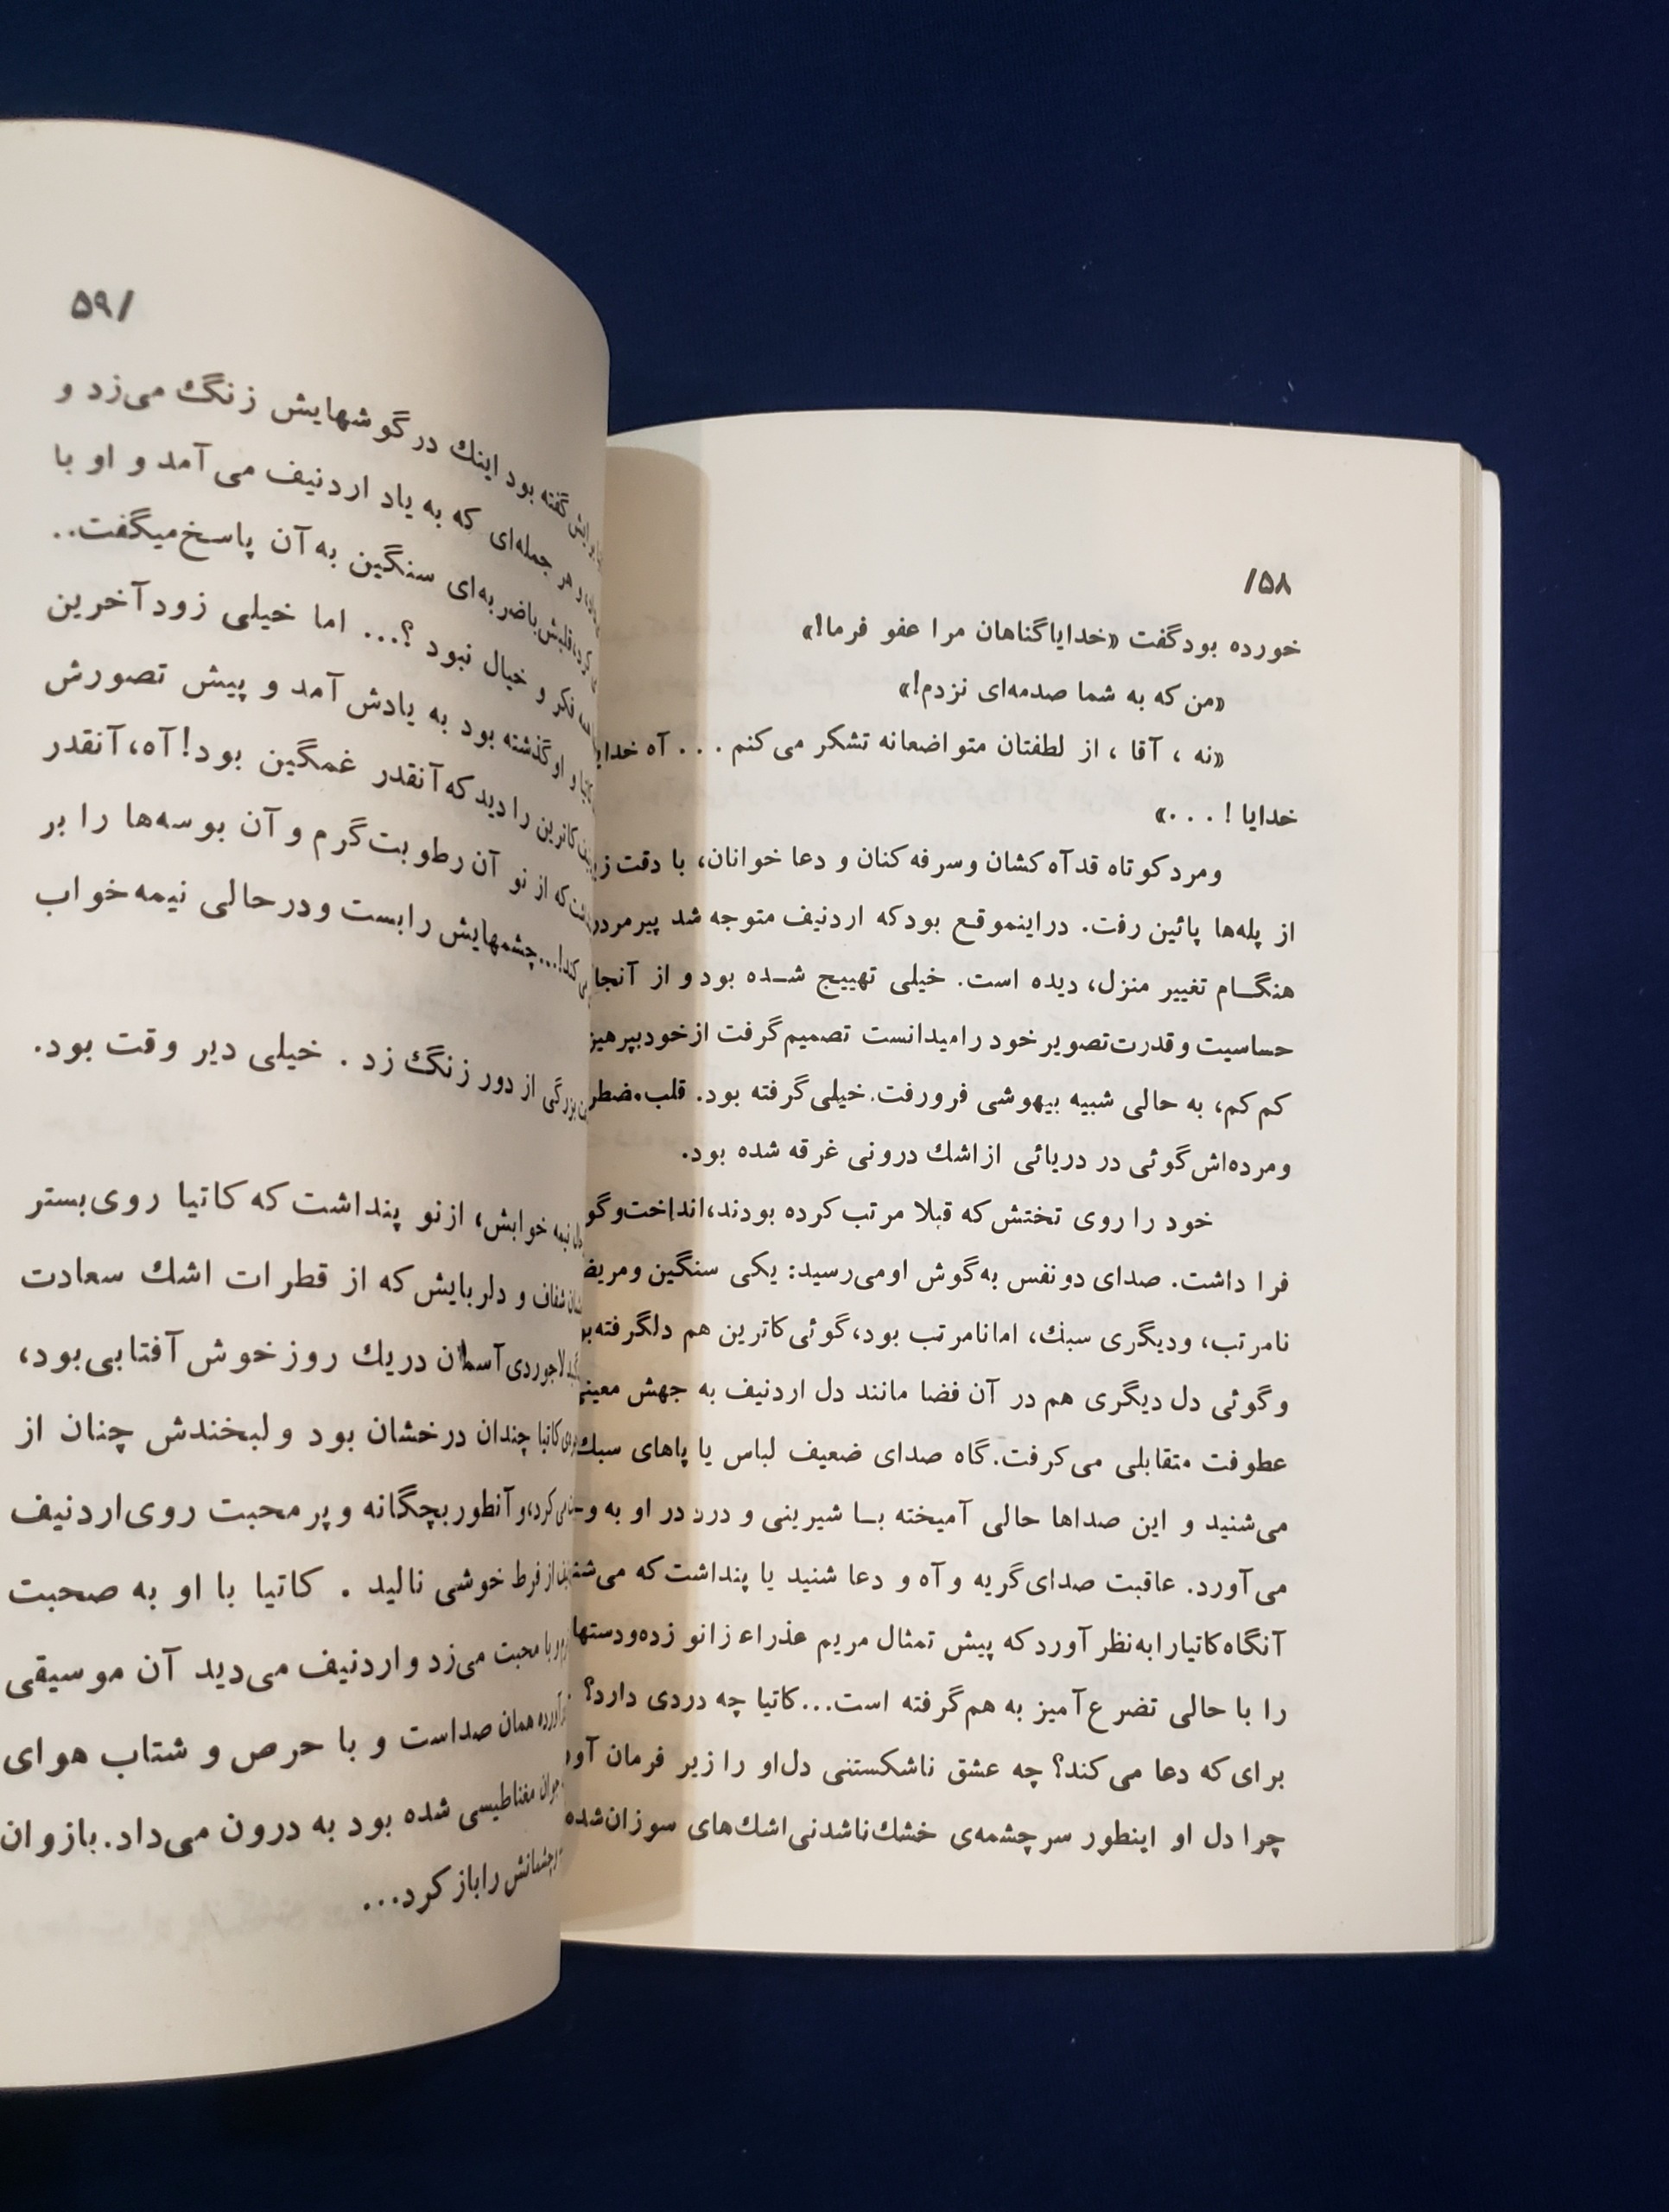 /۵۸
خورده بود گفت «خدایا گناهان مرا عفو فرما!»
«من که به شما صدمه‌ای نزدم!»
«نه ، آقا ، از لطفتان متواضعانه تشکر می‌کنم . . . آه
خدایا ! . . .»
ومرد کوتاه قد آه کشان وسرفه کنان و دعا خوانان، با دقت
از پله‌ها پائین رفت. دراینموقع بود که اردنیف متوجه شد
هنگام تغییر منزل، دیده است. خیلی تهییج شده بود و از آنجا
حساسیت و قدرت تصویر خود رامیدانست تصمیم گرفت از خود
کم کم، به حالی شبیه بیهوشی فرورفت. خیلی گرفته بود. قلب
ومرده‌اش گوئی در دریائی از اشك درونی غرقه شده بود.
خود را روی تختش که قبلا مرتب کرده بودند، انداخت
فرا داشت. صدای دو نفس به گوش اومی‌رسید: یکی سنگین
نامرتب، ودیگری سبك، امانامرتب بود، گوئی کاترین هم دلگرفته
و گوئی دل دیگری هم در آن فضا مانند دل اردنیف به جهش
عطوفت متقابلی می‌کرفت. گاه صدای ضعیف لباس یا پاهای
می‌شنید و این صداها حالی آمیخته بـا شیرینی و درد در او به
می‌آورد. عاقبت صدای گریه و آه و دعا شنید یا پنداشت که
آنگاه کاتیارا به نظر آورد که پیش تمثال مریم عذراء زانو زده ودستها
را با حالی تضرع آمیز به هم گرفته است... کاتیا چه دردی دارد؟
برای که دعا می‌کند؟ چه عشق ناشکستنی دل او را زیر فرمان
چرا دل او اینطور سرچشمه‌ی خشك ناشدنی اشك‌های سوزان
۵۹/
گفته بود اینك در گوشهایش زنگ می‌زد و
و هر جمله‌ای که به یاد اردنیف می‌آمد و او با
باضربه‌ای سنگین به آن پاسخ میگفت..
فکر و خیال نبود ؟... اما خیلی زود آخرین
و او گذشته بود به یادش آمد و پیش تصورش
کاترین را دید که آنقدر غمگین بود! آه، آنقدر
که از نو آن رطوبت گرم و آن بوسه‌ها را بر
چشمهایش را بست و در حالی نیمه خواب
بزرگی از دور زنگ زد . خیلی دیر وقت بود.
نیمه خوابش، از نو پنداشت که کاتیا روی بستر
شفاف و دلربایش که از قطرات اشك سعادت
لاجوردی آسمان در یك روز خوش آفتابی بود،
کاتیا چندان درخشان بود و لبخندش چنان از
می‌کرد، و آنطور بچگانه و پر محبت روی اردنیف
از فرط خوشی نالید . کاتیا با او به صحبت
با محبت می‌زد و اردنیف می‌دید آن موسیقی
همان صداست و با حرص و شتاب هوای
مغناطیسی شده بود به درون می‌داد. بازوان
را باز کرد...